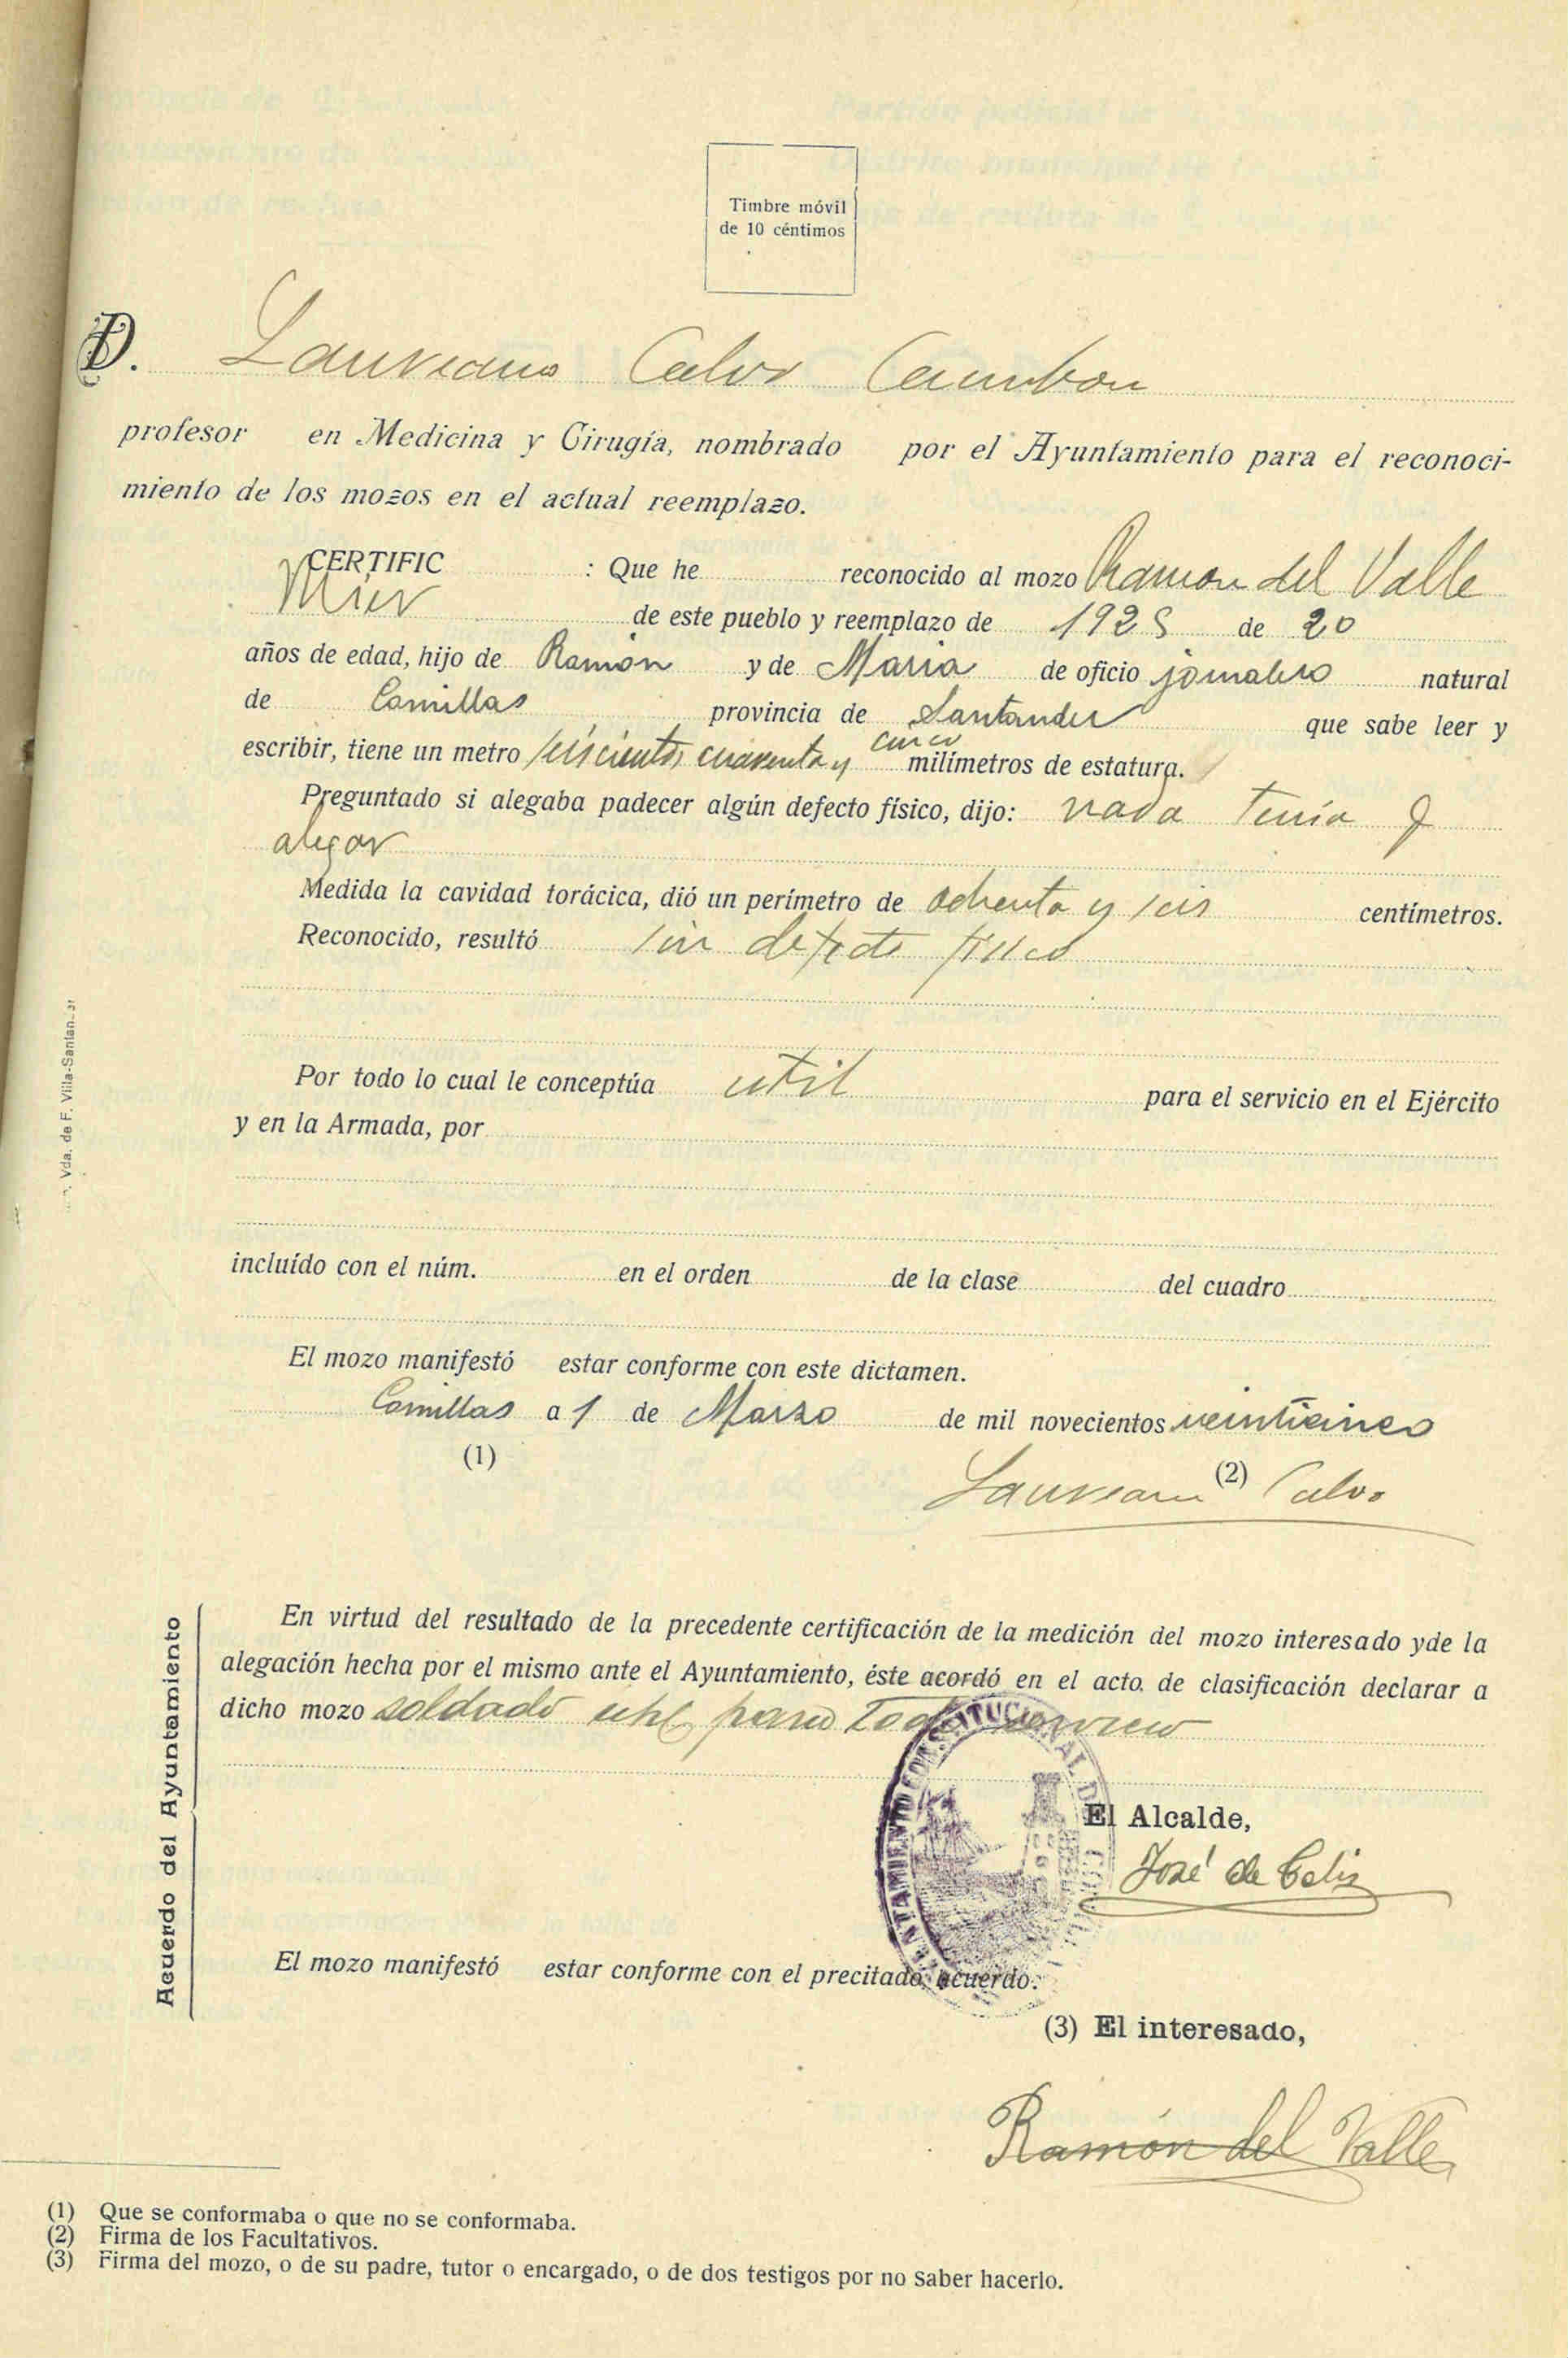 Timbre móvil
de 10 céntimos
D. Laureano Calvo Cambon
profesor en Medicina y Cirugía, nombrado por el Ayuntamiento para el reconoci-
miento de los mozos en el actual reemplazo.
CERTIFIC : Que he reconocido al mozo Ramon del Valle
Mier de este pueblo y reemplazo de 1925 de 20
años de edad, hijo de Ramón y de Maria de oficio jornalero natural
de Comillas provincia de Santander que sabe leer y
escribir, tiene un metro seiscientos cuarenta y cinco milímetros de estatura.
Preguntado si alegaba padecer algún defecto físico, dijo: nada tenía q
alegar
Medida la cavidad torácica, dió un perímetro de ochenta y seis centímetros.
Reconocido, resultó sin defecto físico
Por todo lo cual le conceptúa util para el servicio en el Ejército
y en la Armada, por
incluído con el núm. en el orden de la clase del cuadro
El mozo manifestó estar conforme con este dictamen.
Comillas a 1 de Marzo de mil novecientos veinticinco
(1)
(2)
Laureano Calvo
Acuerdo del Ayuntamiento
En virtud del resultado de la precedente certificación de la medición del mozo interesado yde la
alegación hecha por el mismo ante el Ayuntamiento, éste acordó en el acto de clasificación declarar a
dicho mozo soldado util para todo servicio
El Alcalde,
José de Celis
El mozo manifestó estar conforme con el precitado acuerdo.
(3) El interesado,
Ramón del Valle
(1) Que se conformaba o que no se conformaba.
(2) Firma de los Facultativos.
(3) Firma del mozo, o de su padre, tutor o encargado, o de dos testigos por no saber hacerlo.
Vda. de F. Villa-Santan